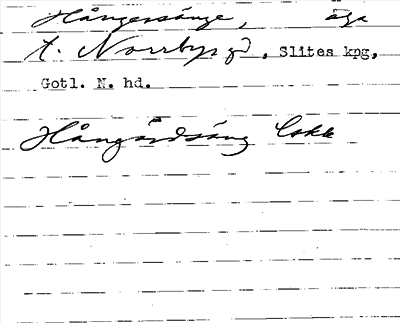 Hångersänge, äga
t. Norrbys gd, Slites kpg,
Gotl. N. hd.
Hångärdsäng